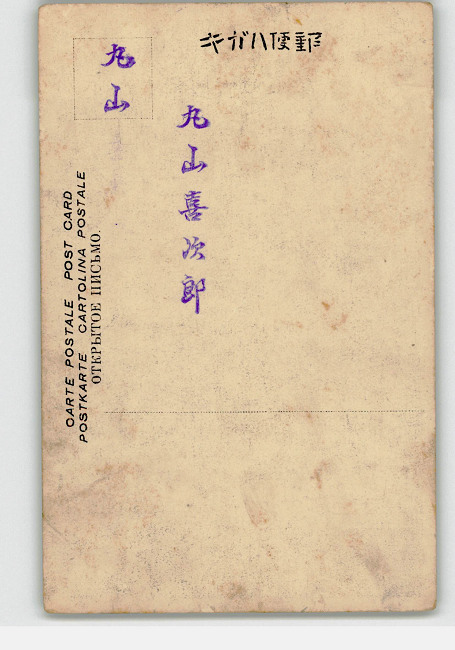 郵便ハガキ
丸山
丸山喜次郎
CARTE POSTALE POST CARD
POSTKARTE CARTOLINA POSTALE
ОТКРЫТОЕ ПИСЬМО.